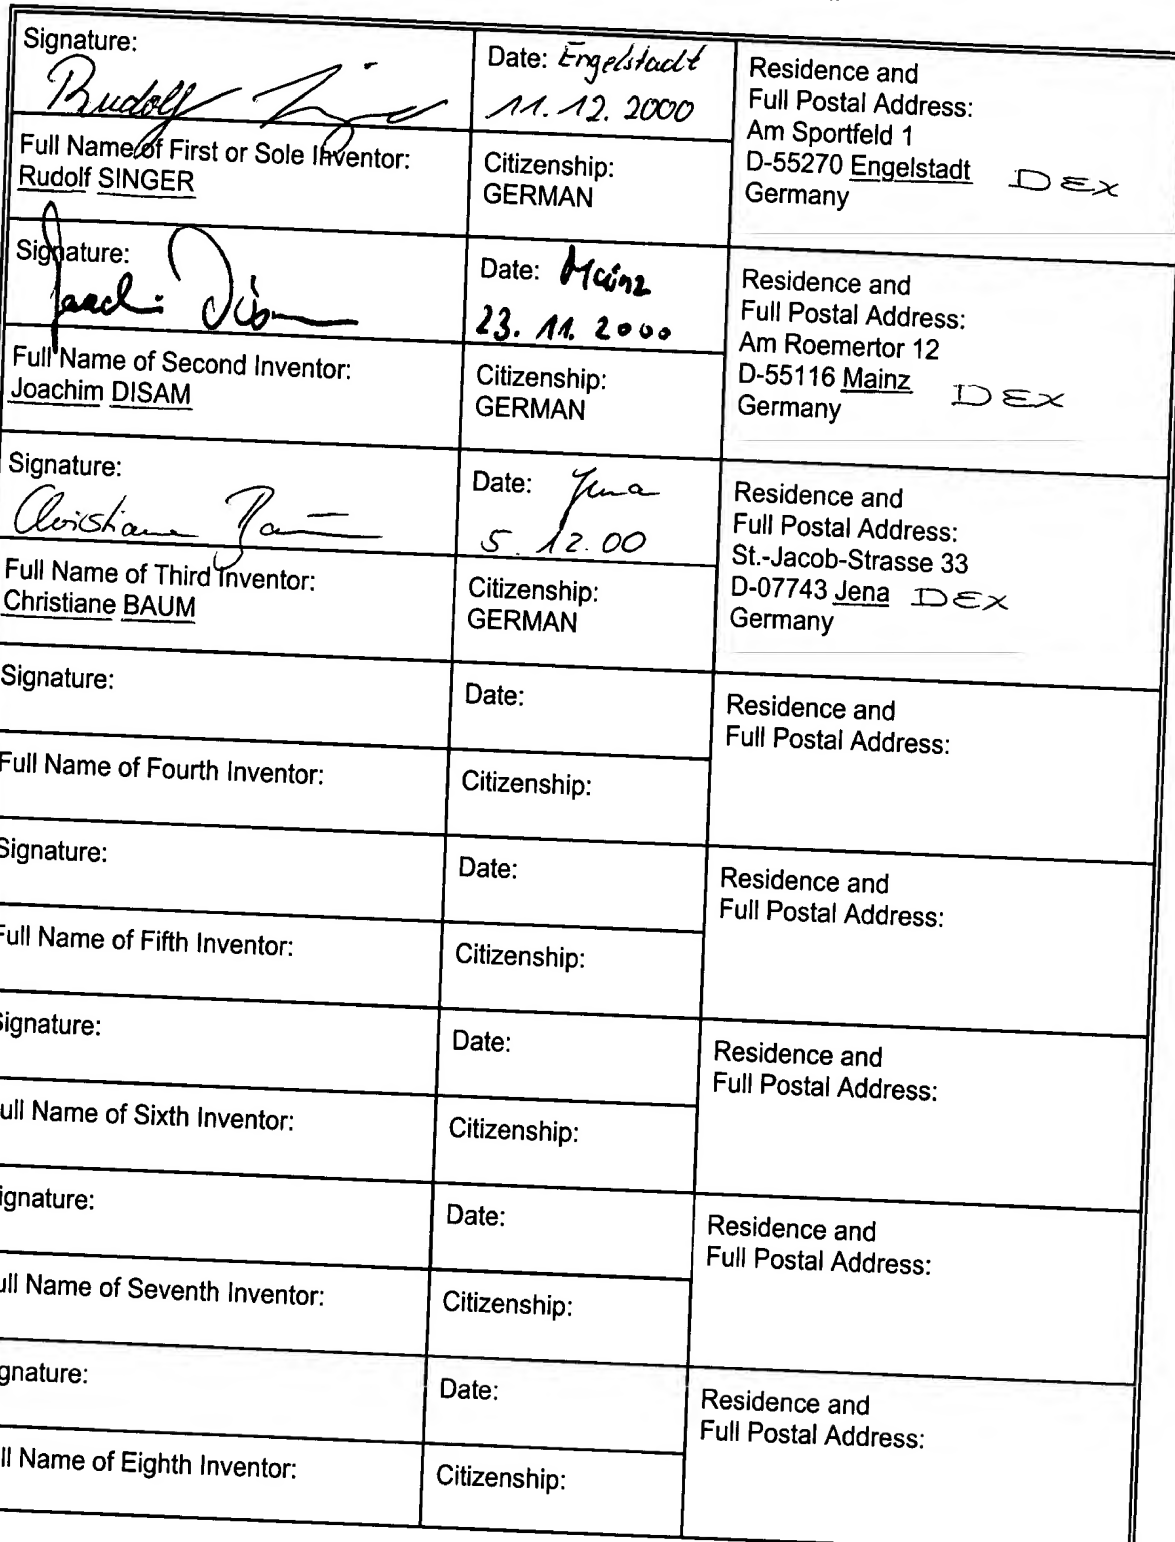 Signature:
Rudolf Singer
Date: Engelstadt
11.12.2000
Residence and
Full Postal Address:
Am Sportfeld 1
D-55270 Engelstadt DEX
Germany
Full Name of First or Sole Inventor:
Rudolf SINGER
Citizenship:
GERMAN
Signature:
Joachim Disam
Date: Mainz
23. 11. 2000
Residence and
Full Postal Address:
Am Roemertor 12
D-55116 Mainz DEX
Germany
Full Name of Second Inventor:
Joachim DISAM
Citizenship:
GERMAN
Signature:
Christiane Baum
Date: Jena
5. 12.00
Residence and
Full Postal Address:
St.-Jacob-Strasse 33
D-07743 Jena DEX
Germany
Full Name of Third Inventor:
Christiane BAUM
Citizenship:
GERMAN
Signature:
Date:
Residence and
Full Postal Address:
Full Name of Fourth Inventor:
Citizenship:
Signature:
Date:
Residence and
Full Postal Address:
Full Name of Fifth Inventor:
Citizenship:
Signature:
Date:
Residence and
Full Postal Address:
ull Name of Sixth Inventor:
Citizenship:
ignature:
Date:
Residence and
Full Postal Address:
ull Name of Seventh Inventor:
Citizenship:
gnature:
Date:
Residence and
Full Postal Address:
ll Name of Eighth Inventor:
Citizenship: